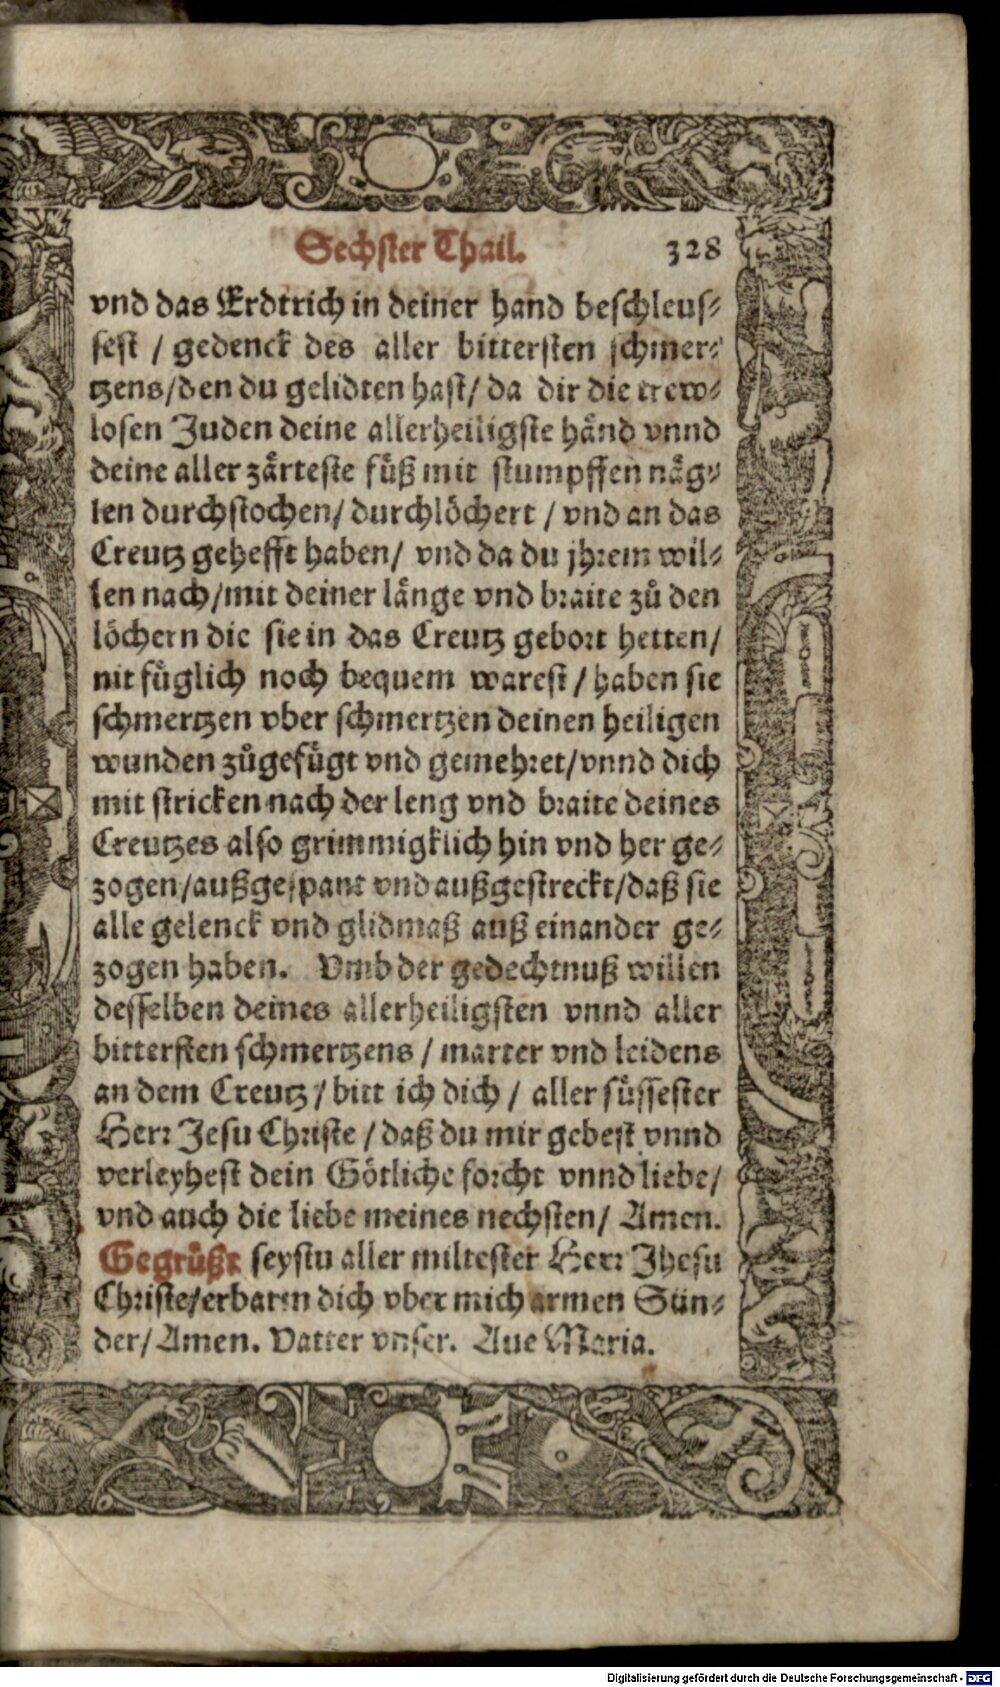 Sechster Thail. 328
vnd das Erdtrich in deiner hand beschleus-
sest / gedenck des aller bittersten schmer-
tzens/den du gelidten hast/ da dir die trew-
losen Juden deine allerheiligste händ vnnd
deine aller zärteste fuͤß mit stumpffen näg-
len durchstochen/ durchlöchert / vnd an das
Creutz gehefft haben/ vnd da du jhrem wil-
len nach/mit deiner länge vnd braite zuͦ den
löchern die sie in das Creutz gebort hetten/
nit fuͤglich noch bequem warest / haben sie
schmertzen vber schmertzen deinen heiligen
wunden zuͦgefuͤgt vnd gemehret/vnnd dich
mit stricken nach der leng vnd braite deines
Creutzes also grimmigklich hin vnd her ge-
zogen/außgespant vnd außgestreckt/daß sie
alle gelenck vnd glidmaß auß einander ge-
zogen haben. Vmb der gedechtnuß willen
desselben deines allerheiligsten vnnd aller
bittersten schmertzens / marter vnd leidens
an dem Creutz / bitt ich dich / aller suͤssester
Herr Jesu Christe / daß du mir gebest vnnd
verleyhest dein Götliche forcht vnnd liebe/
vnd auch die liebe meines nechsten/ Amen.
Gegruͤßt seystu aller miltester Herr Jhesu
Christe/erbarm dich vber mich armen Sün-
der/ Amen. Vatter vnser. Aue Maria.
Digitalisierung gefördert durch die Deutsche Forschungsgemeinschaft - DFG